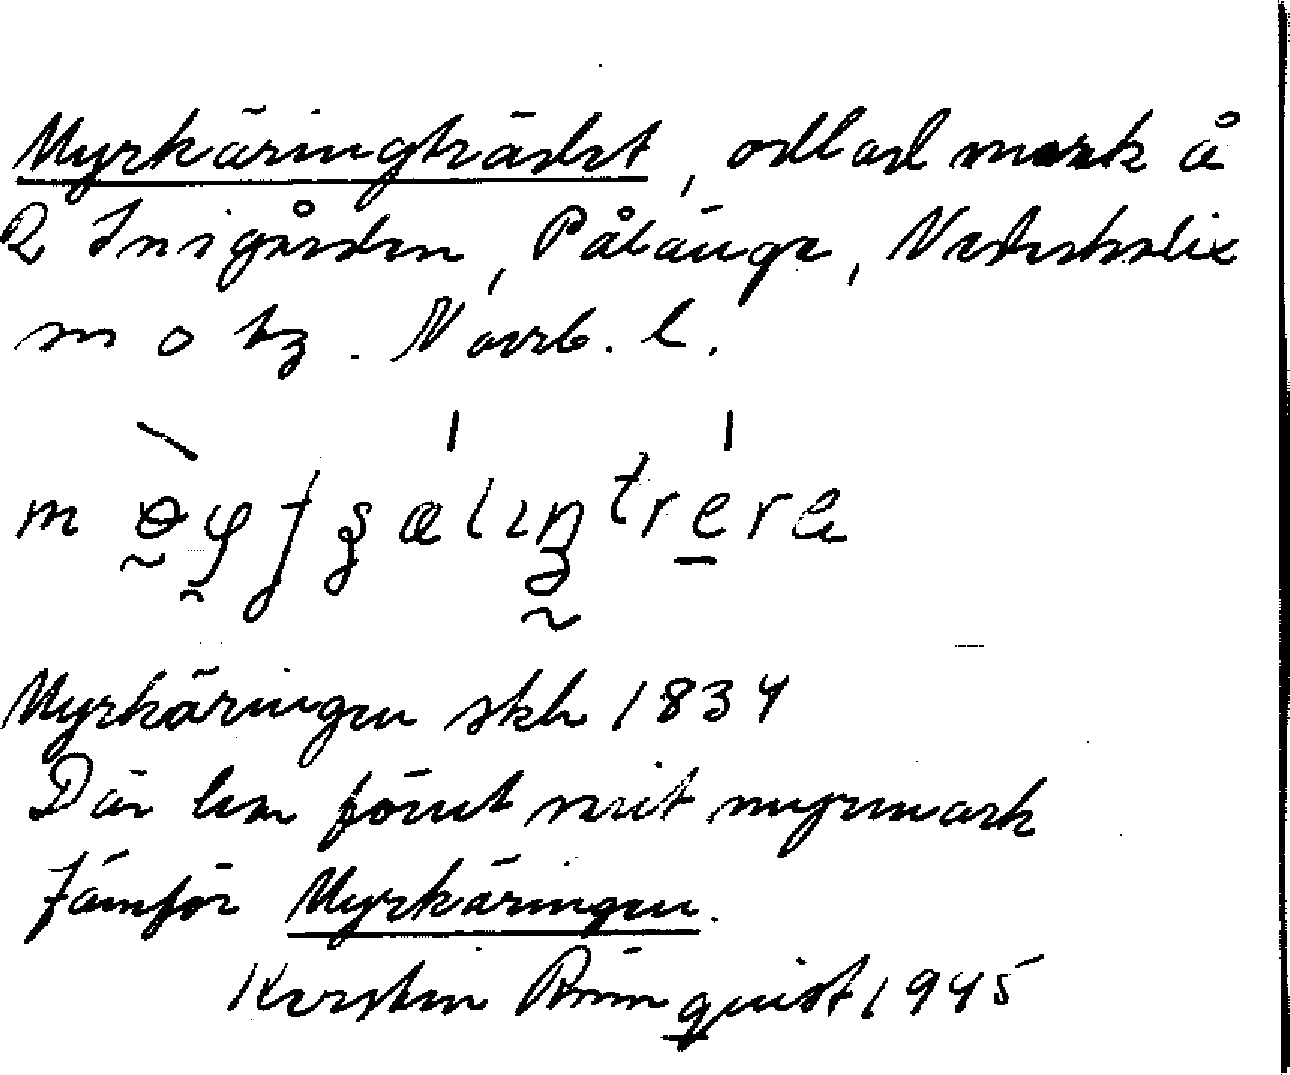 Myrkäringträdet, odlad mark å
2 Inigården, Pålänge, Nederkalix
sn o tg. Norrb. l.
Myrkäringen skh 1834
Där len förut varit myrmark
Jämför Myrkäringen.
Kerstin Rönnquist 1945